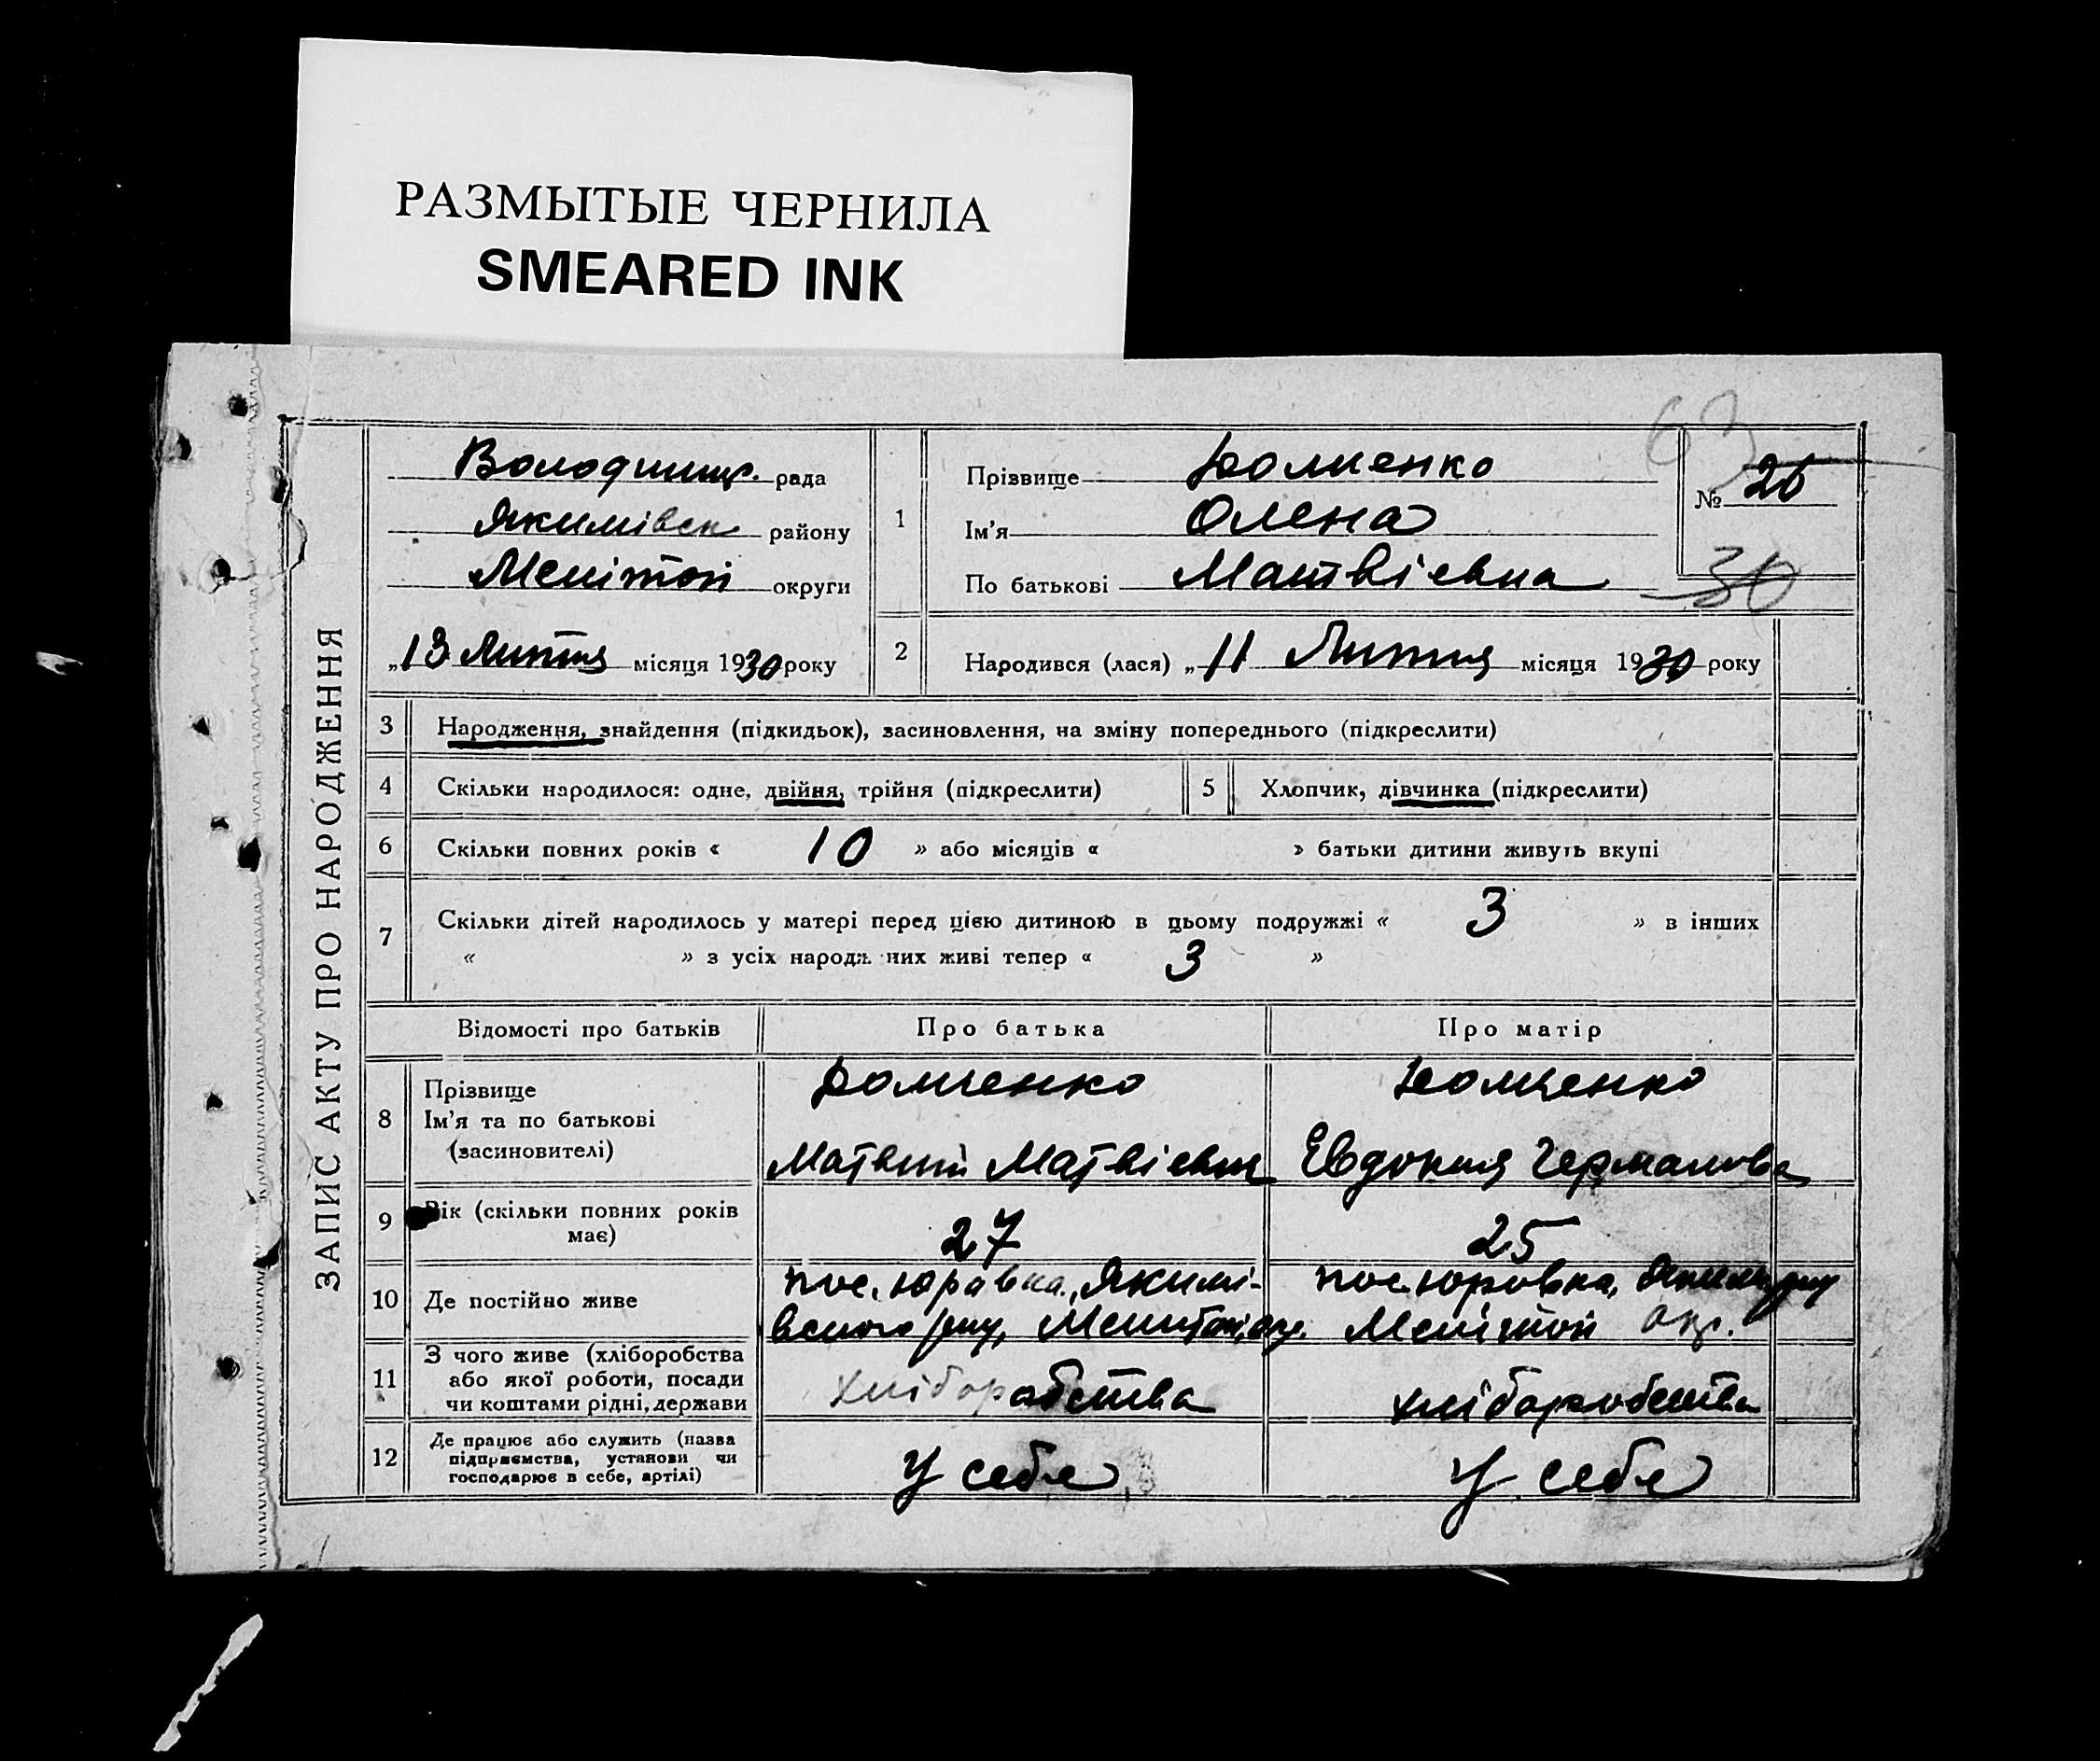 РАЗМЫТЫЕ ЧЕРНИЛА
SMEARED INK
63
ЗАПИС АКТУ ПРО НАРОДЖЕННЯ
рада
Якимівськ району
Меліттоп округи
„13 Лютня місяця 1930 року
1
Прізвище
Ім'я Олена
По батькові Матвіевна
№ 26
30
2
Народився (лася) „11 Лютня місяця 1930 року
3 Народження, знайдення (підкидьок), засиновлення, на зміну попереднього (підкреслити)
4 Скільки народилося: одне, двійня, трійня (підкреслити)
5 Хлопчик, дівчинка (підкреслити)
6 Скільки повних років « 10 » або місяців « » батьки дитини живуть вкупі
7 Скільки дітей народилось у матері перед цією дитиною в цьому подружжі « 3 » в інших
« » з усіх народж них живі тепер « 3 »
Відомості про батьків
Про батька
Про матір
8 Прізвище
Ім'я та по батькові
(засиновителі)
Матвій Матвіевич
Евдокия Германовна
9 Вік (скільки повних років
має)
27
25
10 Де постійно живе
пос. Юровка, Якимі-
вського р-ну,
пос. Юровка,
окр.
11 З чого живе (хліборобства
або якої роботи, посади
чи коштами рідні, держави
хліборобства
хліборобства
12 Де працює або служить (назва
підприємства, установи чи
господарює в себе, артілі)
У себе
У себе